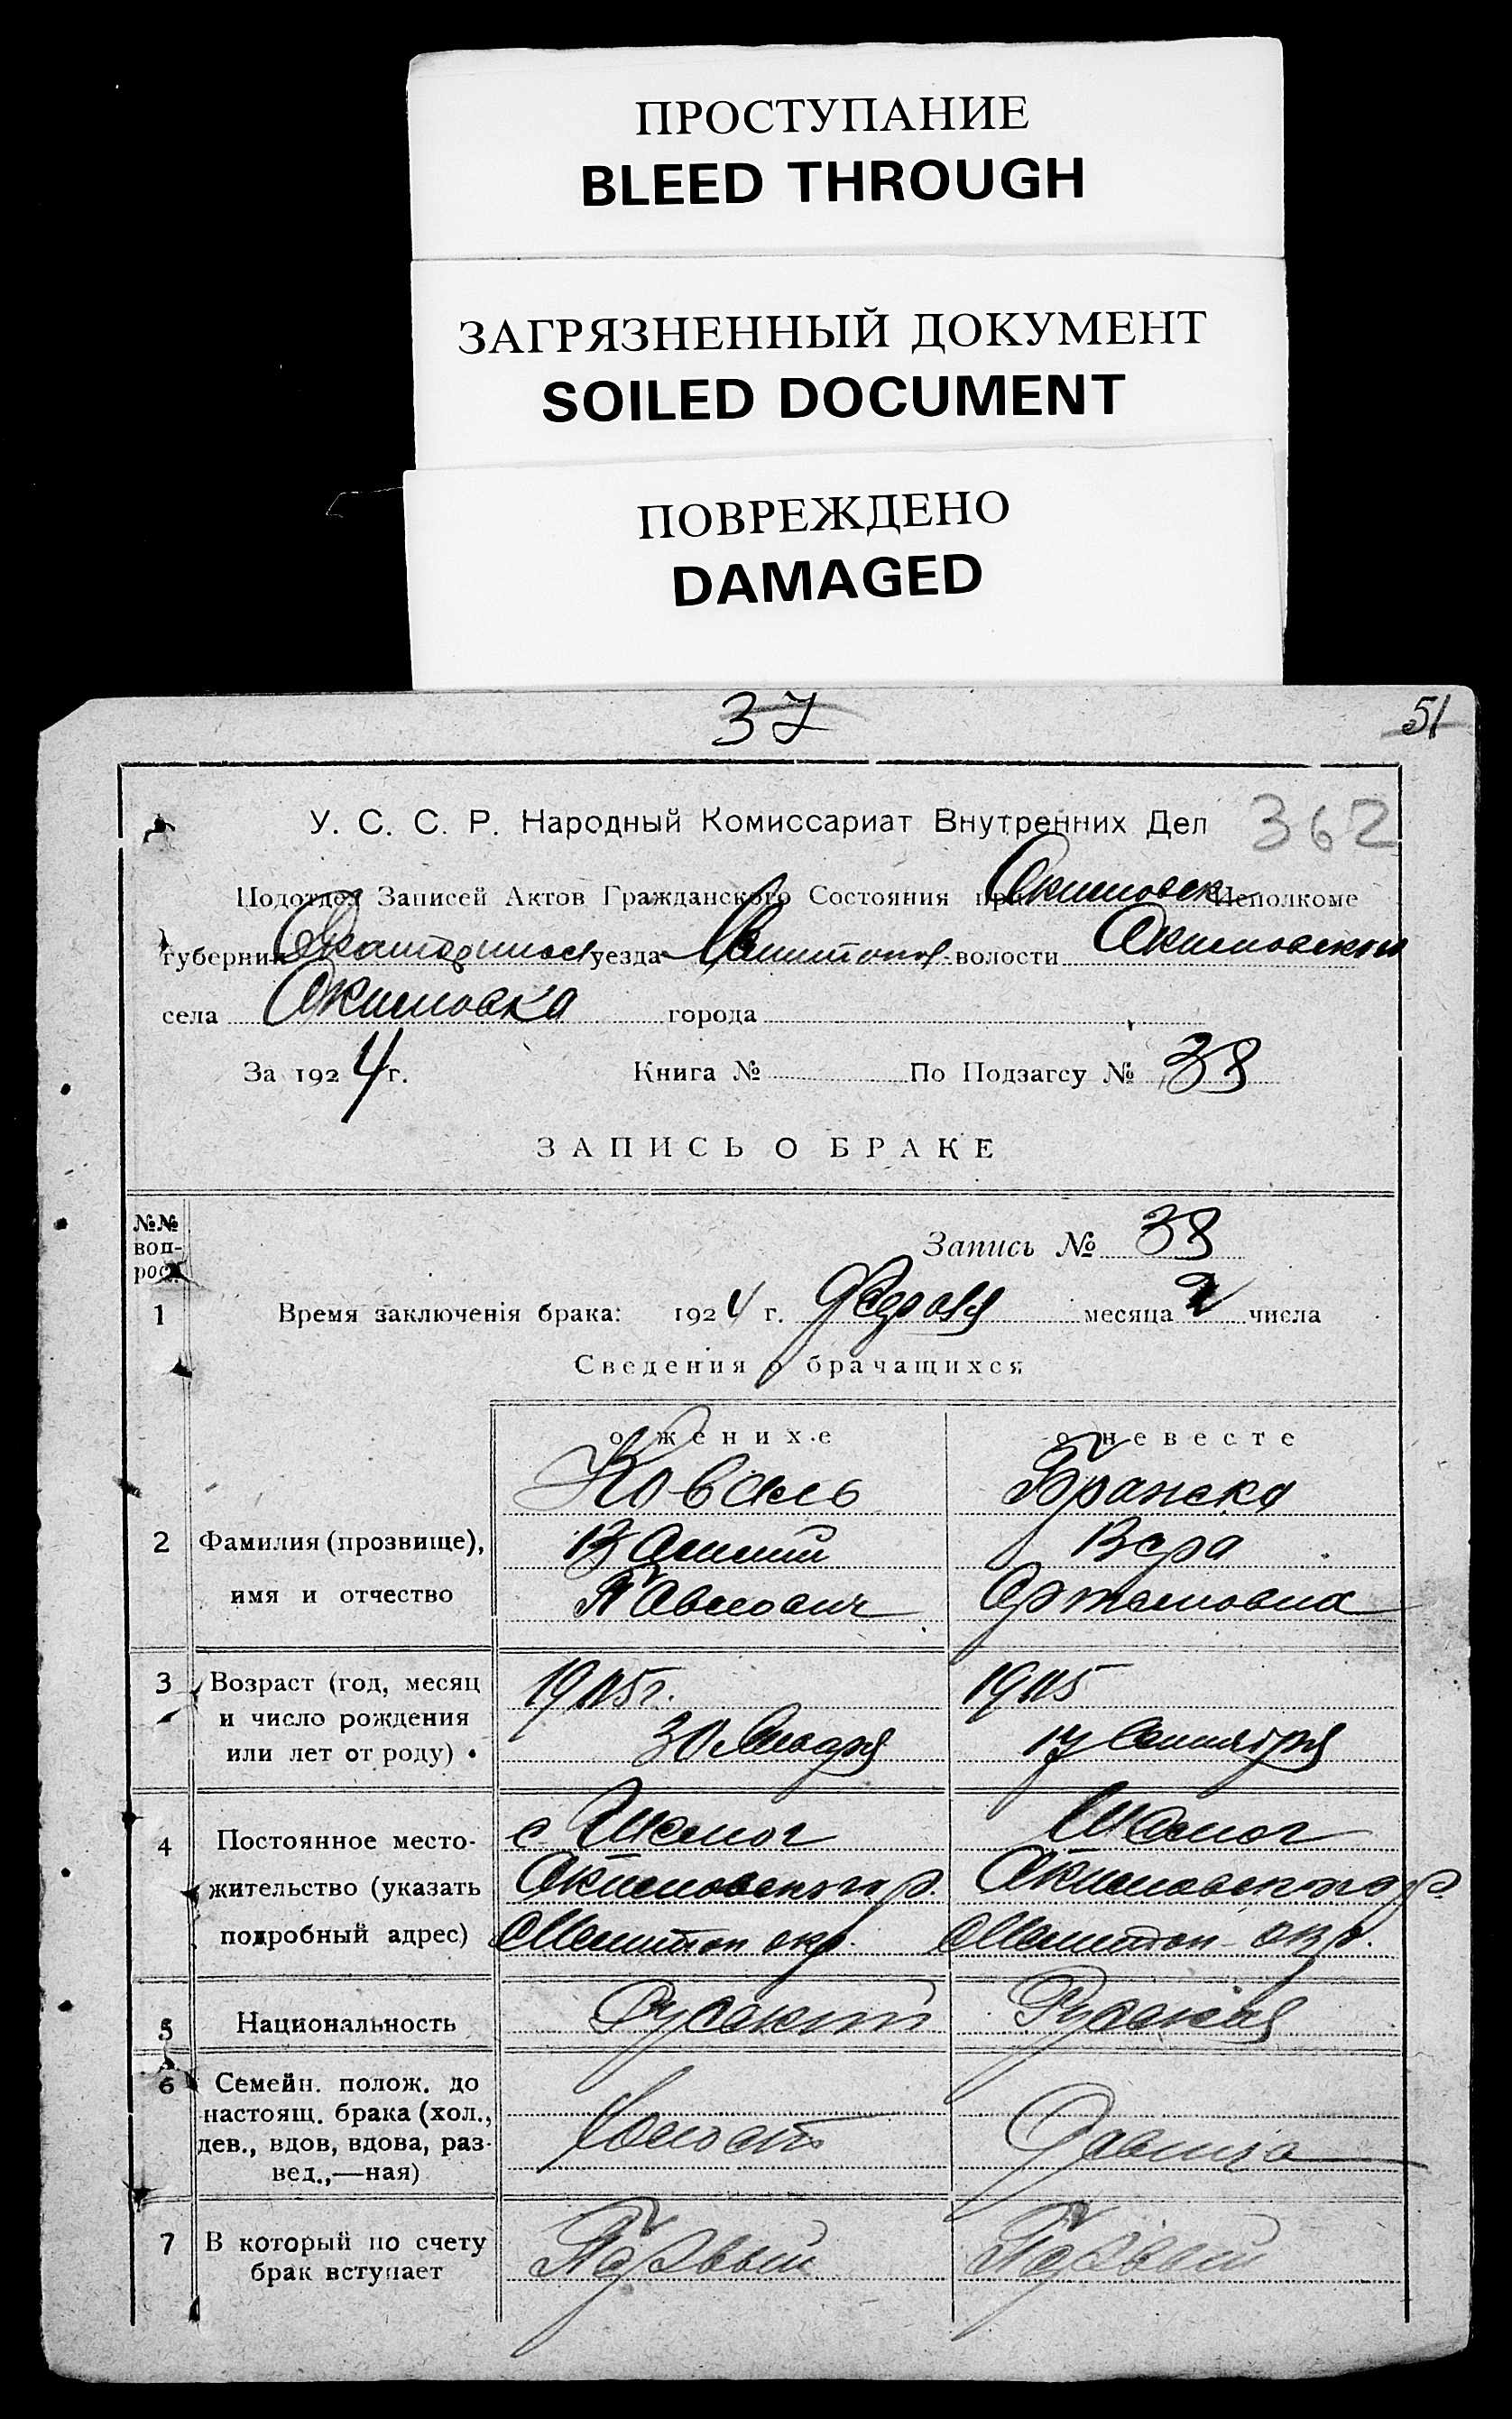 ПРОСТУПАНИЕ
BLEED THROUGH
ЗАГРЯЗНЕННЫЙ ДОКУМЕНТ
SOILED DOCUMENT
ПОВРЕЖДЕНО
DAMAGED
37
51
У. С. С. Р. Народный Комиссариат Внутренних Дел 362
Подотдел Записей Актов Гражданского Состояния при Акимовск Исполкоме
губернии уезда волости Акимовской
села Акимовка города
За 1924 г. Книга № По Подзагсу № 38
ЗАПИСЬ О БРАКЕ
№№ воп-рос.
Запись № 38
1 Время заключенія брака: 1924 г. месяца 2 числа
Сведения о брачащихся
о женихе о невесте
Коваль Бранска
2 Фамилия (прозвище), Вера
имя и отчество Павлович Артемовна
3 Возраст (год, месяц 1905 г. 1905
и число рождения
или лет от роду) 30 Января 17 Сентября
4 Постоянное место- с
жительство (указать Акимовского р. Акимовского р.
подробный адрес) Мелитоп окр. Мелитоп окр.
5 Национальность Русский Русская
6 Семейн. полож. до
настоящ. брака (хол.,
дев., вдов, вдова, раз- Холост Девица
вед.,—ная)
7 В который по счету Первый Первый
брак вступает